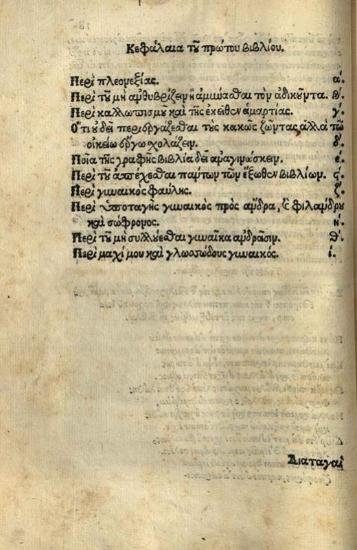 Κεφάλαια τοῦ πρώτου βιβλίου.
Περὶ πλεονεξίας. ά.
Περὶ τοῦ μὴ ἀνθυβρίζειν ἢ ἀμύνασθαι τὸν ἀδικοῦντα. β.
Περὶ καλλωπισμοῦ καὶ τῆς ἐκεῖθεν ἁμαρτίας. γ.
Ὅτι οὐ δεῖ περιεργάζεσθαι τοὺς κακῶς ζῶντας, ἀλλὰ τῷ
οἰκείῳ ἔργῳ σχολάζειν. δ.
Ποῖα τῆς γραφῆς βιβλία δεῖ ἀναγινώσκειν. ε.
Περὶ τοῦ ἀπέχεσθαι πάντων τῶν ἔξωθεν βιβλίων. ϛ.
Περὶ γυναικὸς φαύλης. ζ.
Περὶ ὑποταγῆς γυναικὸς πρὸς ἄνδρα, καὶ φιλάνδρου
καὶ σώφρονος. ή.
Περὶ τοῦ μὴ συλλούεσθαι γυναῖκα ἀνδράσιν. θ.
Περὶ μαχίμου καὶ γλωσσώδους γυναικός. ί.
Διαταγαὶ